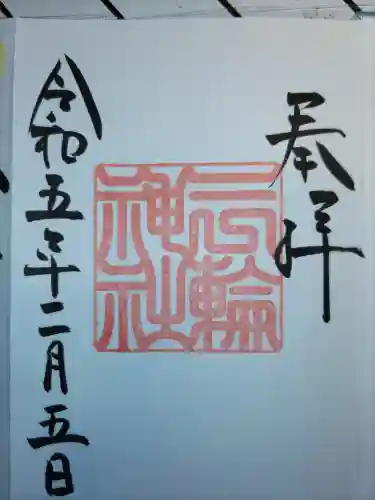 奉拝
三輪神社
令和五年二月五日